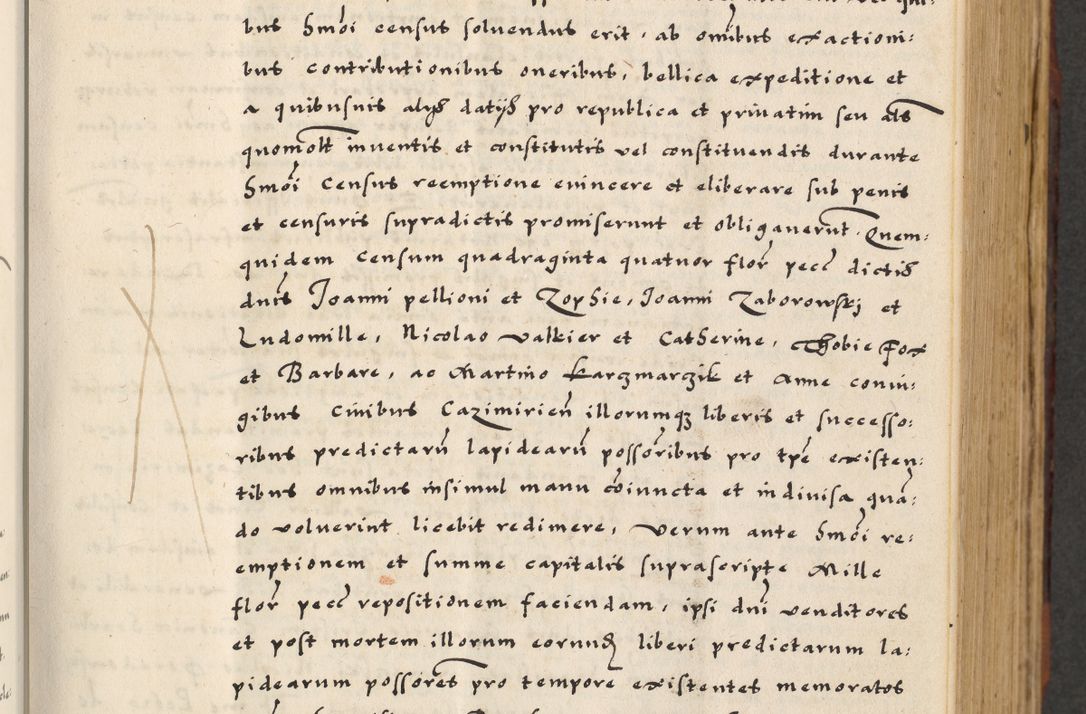 bus hm̄oi census solvendus erit, ab om̄ibus exactioni:
bus contributionibus oneribus, bellica expeditione et
a quibusuis alijs datijs pro republica et priuatim seu als
quomolt inuentis et constitutis vel constituendis durante
hm̄oi census reemptione euincere et eliberare sub penis
et censuris supradictis promiserunt et obligauerūt. Quem:
quidem censum quadraginta quatuor flor̄ pecc̄ dictis
dnis Joanni pellioni et Zophie, Joanni Zaborowskj et
Ludomille, Nicolao valkier et Catherine, Thobie Fox
et Barbare, ac Martino Karczmarczik et Anne coniu:
gibus Ciuibus Cazimirien̄ illorumqз liberis et successo:
ribus predictarū lapidearū possōribus pro tp̄e existen:
tibus omnibus insimul manu cōiuncta et indiuisa quā:
do voluerint licebit redimere, Verum ante hm̄oi re:
emptionem et summe capitalis suprascripte Mille
flor̄ pecc̄ repositionem faciendam, ipsi dn̄i venditores
et post mortem illorum eorund liberi predictarum la:
pidearum possōres pro tempore existentes memoratos